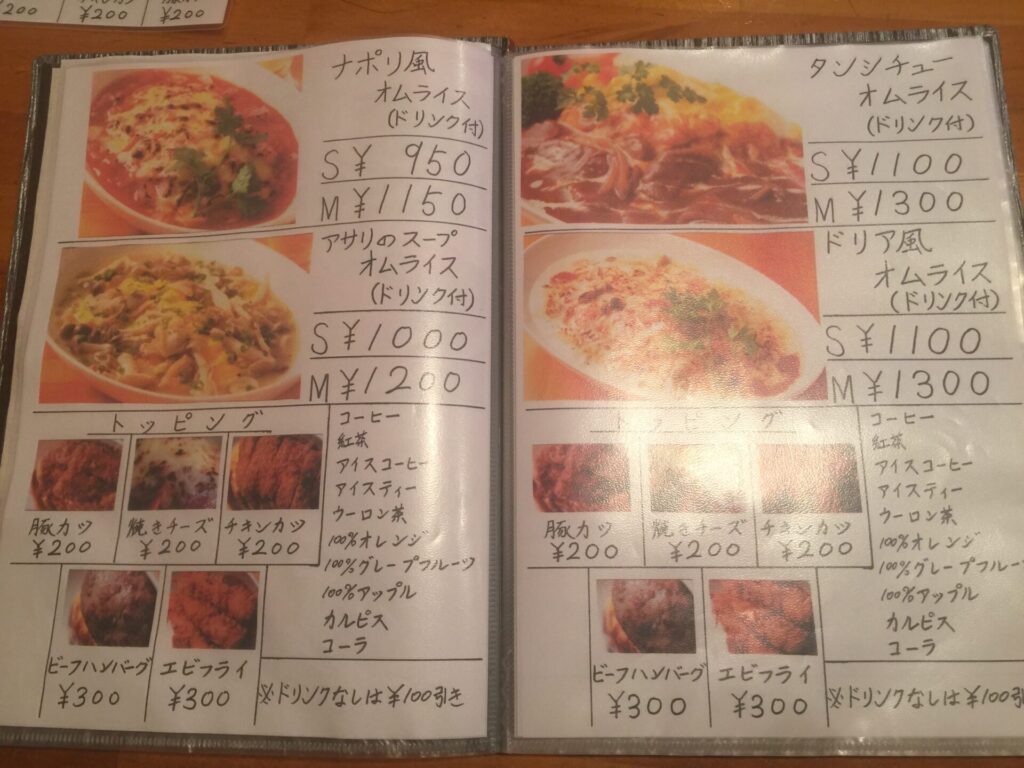 ¥200
¥200
¥200
ナポリ風
オムライス
(ドリンク付)
S ¥ 950
M ¥1150
アサリのスープ
オムライス
(ドリンク付)
S ¥1000
M ¥1200
トッピング
豚カツ
¥200
焼きチーズ
¥200
チキンカツ
¥200
ビーフハンバーグ
¥300
エビフライ
¥300
コーヒー
紅茶
アイスコーヒー
アイスティー
ウーロン茶
100%オレンジ
100%グレープフルーツ
100%アップル
カルピス
コーラ
※ドリンクなしは¥100引き
タンシチュー
オムライス
(ドリンク付)
S ¥1100
M ¥1300
ドリア風
オムライス
(ドリンク付)
S ¥1100
M ¥1300
トッピング
豚カツ
¥200
焼きチーズ
¥200
チキンカツ
¥200
ビーフハンバーグ
¥300
エビフライ
¥300
コーヒー
紅茶
アイスコーヒー
アイスティー
ウーロン茶
100%オレンジ
100%グレープフルーツ
100%アップル
カルピス
コーラ
※ドリンクなしは¥100引き